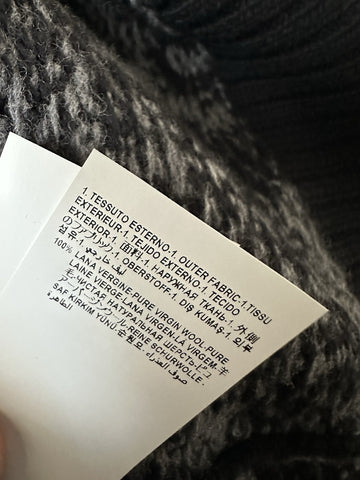 1. TESSUTO ESTERNO-1. OUTER FABRIC-1.TISSU
EXTERIEUR-1. TEJIDO EXTERNO-1. TECIDO
EXTERIOR-1. 面料-1. НАРУЖНАЯ ТКАНЬ-1. 外側
のファブリック-1. OBERSTOFF-1. DIŞ KUMAŞ-1. 외부
섬유-1. ليف خارجي
100% LANA VERGINE-PURE VIRGIN WOOL-PURE
LAINE VIERGE-LANA VIRGEN-LÃ VIRGEM-羊
毛-ЧИСТАЯ НАТУРАЛЬНАЯ ШЕРСТЬ-ピュ
アバージンウール-REINE SCHURWOLLE-
SAF KIRKIM YÜNÜ-순환모-صوف العذراء
الطاهرة